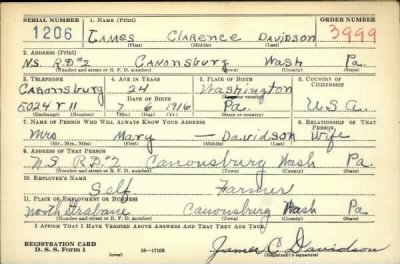 SERIAL NUMBER 1. NAME (Print) ORDER NUMBER
1206 James Clarence Davidson 3999
(First) (Middle) (Last)
2. ADDRESS (Print)
N.S. R.D.#2 Canonsburg Wash Pa.
(Number and street or R. F. D. number) (Town) (County) (State)
3. TELEPHONE 4. AGE IN YEARS 5. PLACE OF BIRTH 6. COUNTRY OF CITIZENSHIP
Canonsburg 24 Washington
DATE OF BIRTH (Town or county)
5024 r 11 7 6 1916 Pa. U.S.A.
(Exchange) (Number) (Mo.) (Day) (Yr.) (State or country)
7. NAME OF PERSON WHO WILL ALWAYS KNOW YOUR ADDRESS 8. RELATIONSHIP OF THAT PERSON
Mrs Mary — Davidson Wife
(Mr., Mrs., Miss) (First) (Middle) (Last)
9. ADDRESS OF THAT PERSON
N.S. R.D.#2 Canonsburg Wash Pa.
(Number and street or R. F. D. number) (Town) (County) (State)
10. EMPLOYER'S NAME
Self Farmer
11. PLACE OF EMPLOYMENT OR BUSINESS
North Strabane Canonsburg Wash Pa.
(Number and street or R. F. D. number) (Town) (County) (State)
I AFFIRM THAT I HAVE VERIFIED ABOVE ANSWERS AND THAT THEY ARE TRUE.
REGISTRATION CARD
D. S. S. Form 1 (over) 16—17105 James C. Davidson
(Registrant's signature)